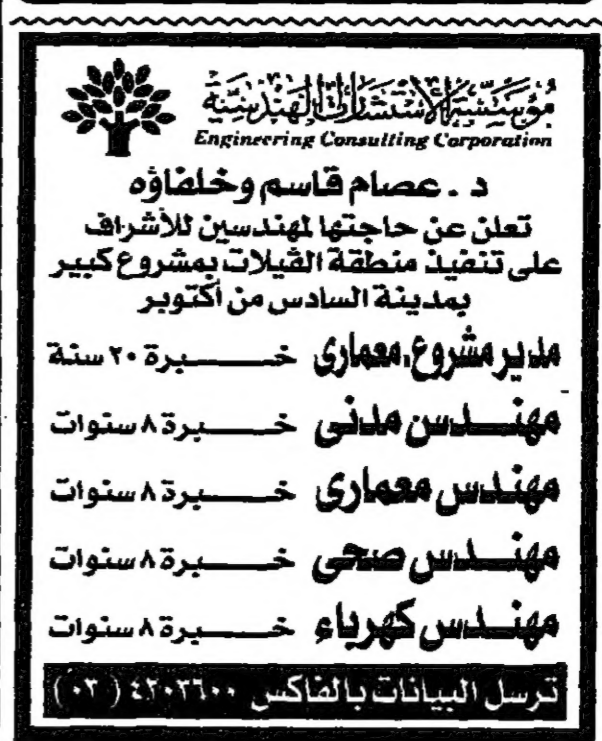 مؤسسة الاستشارات الهندسية
Engineering Consulting Corporation
د . عصام قاسم وخلفاؤه
تعلن عن حاجتها لمهندسين للأشراف
على تنفيذ منطقة الفيلات بمشروع كبير
بمدينة السادس من أكتوبر
مدير مشروع، معمارى خبرة ٢٠ سنة
مهندس مدنى خبرة ٨ سنوات
مهندس معمارى خبرة ٨ سنوات
مهندس صحى خبرة ٨ سنوات
مهندس كهرباء خبرة ٨ سنوات
ترسل البيانات بالفاكس ٤٢٠٣٦٠٠ (٠٣)